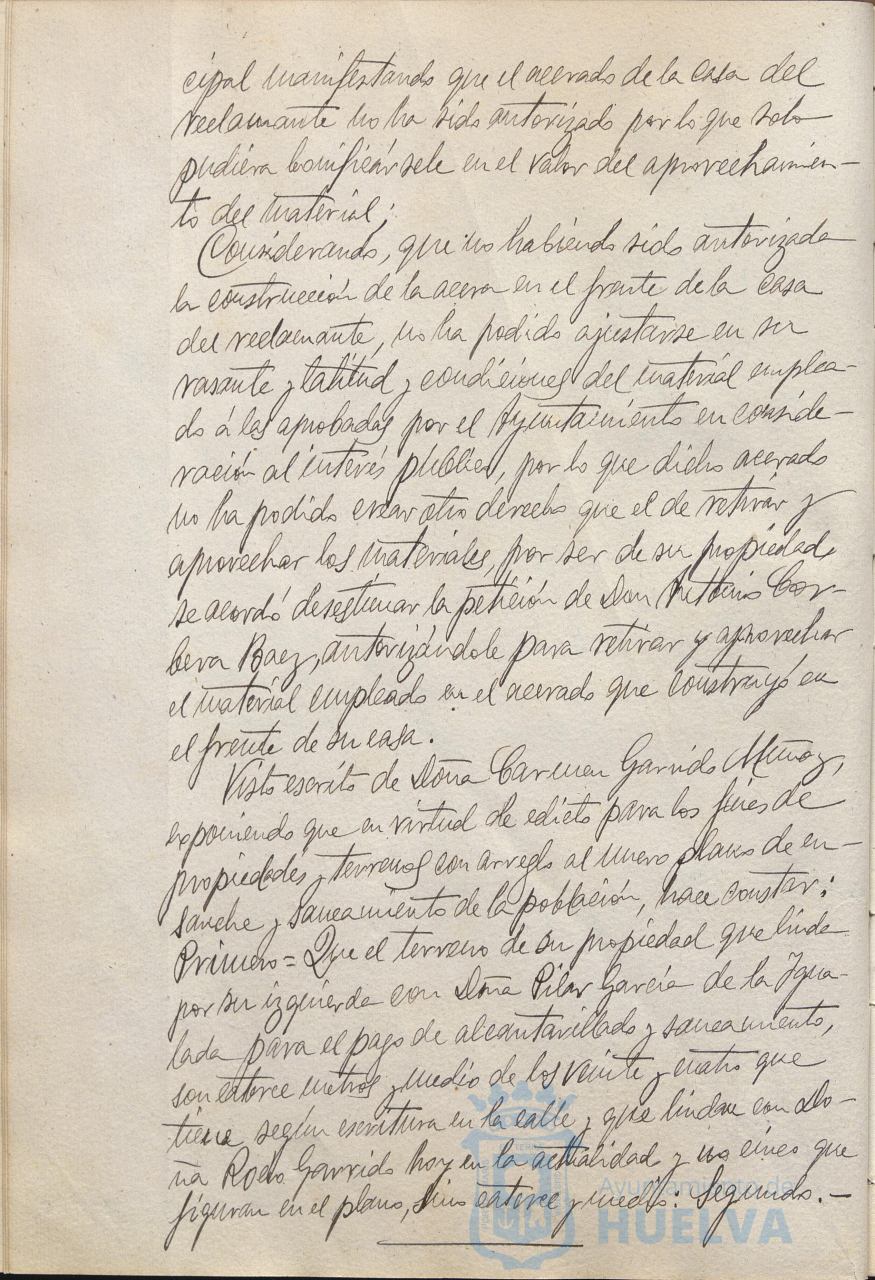 cipal manifestando que el acerado de la casa del
reclamante no ha sido autorizado por lo que solo
pudiera bonificársele en el valor del aprovechamien-
to del material;
Considerando, que no habiendo sido autorizada
la construcción de la acera en el frente de la casa
del reclamante, no ha podido ajustarse en su
rasante y latitud y condiciones del material emplea-
do á las aprobadas por el Ayuntamiento en conside-
ración al interés público, por lo que dicho acerado
no ha podido crear otro derecho que el de retirar y
aprovechar los materiales, por ser de su propiedad,
se acordó desestimar la petición de Don Antonio Cor-
bera Baez, autorizándole para retirar y aprovechar
el material empleado en el acerado que construyó en
el frente de su casa.
Visto escrito de Doña Carmen Garrido Muñoz,
exponiendo que en virtud de edicto para los fines de
propiedades y terrenos con arreglo al nuevo plano de en-
sanche y saneamiento de la población, hace constar:
Primero= Que el terreno de su propiedad que linda
por su izquierda con Doña Pilar García de la Igua-
lada para el pago de alcantarillado y saneamiento,
son catorce metros y medio de los veinte y cuatro que
tiene según escritura en la calle y que lindan con Do-
ña Rocio Garrido hoy en la actualidad y no cinco que
figuran en el plano, sino catorce y medio: Segundo.—
Ayuntamiento de
HUELVA